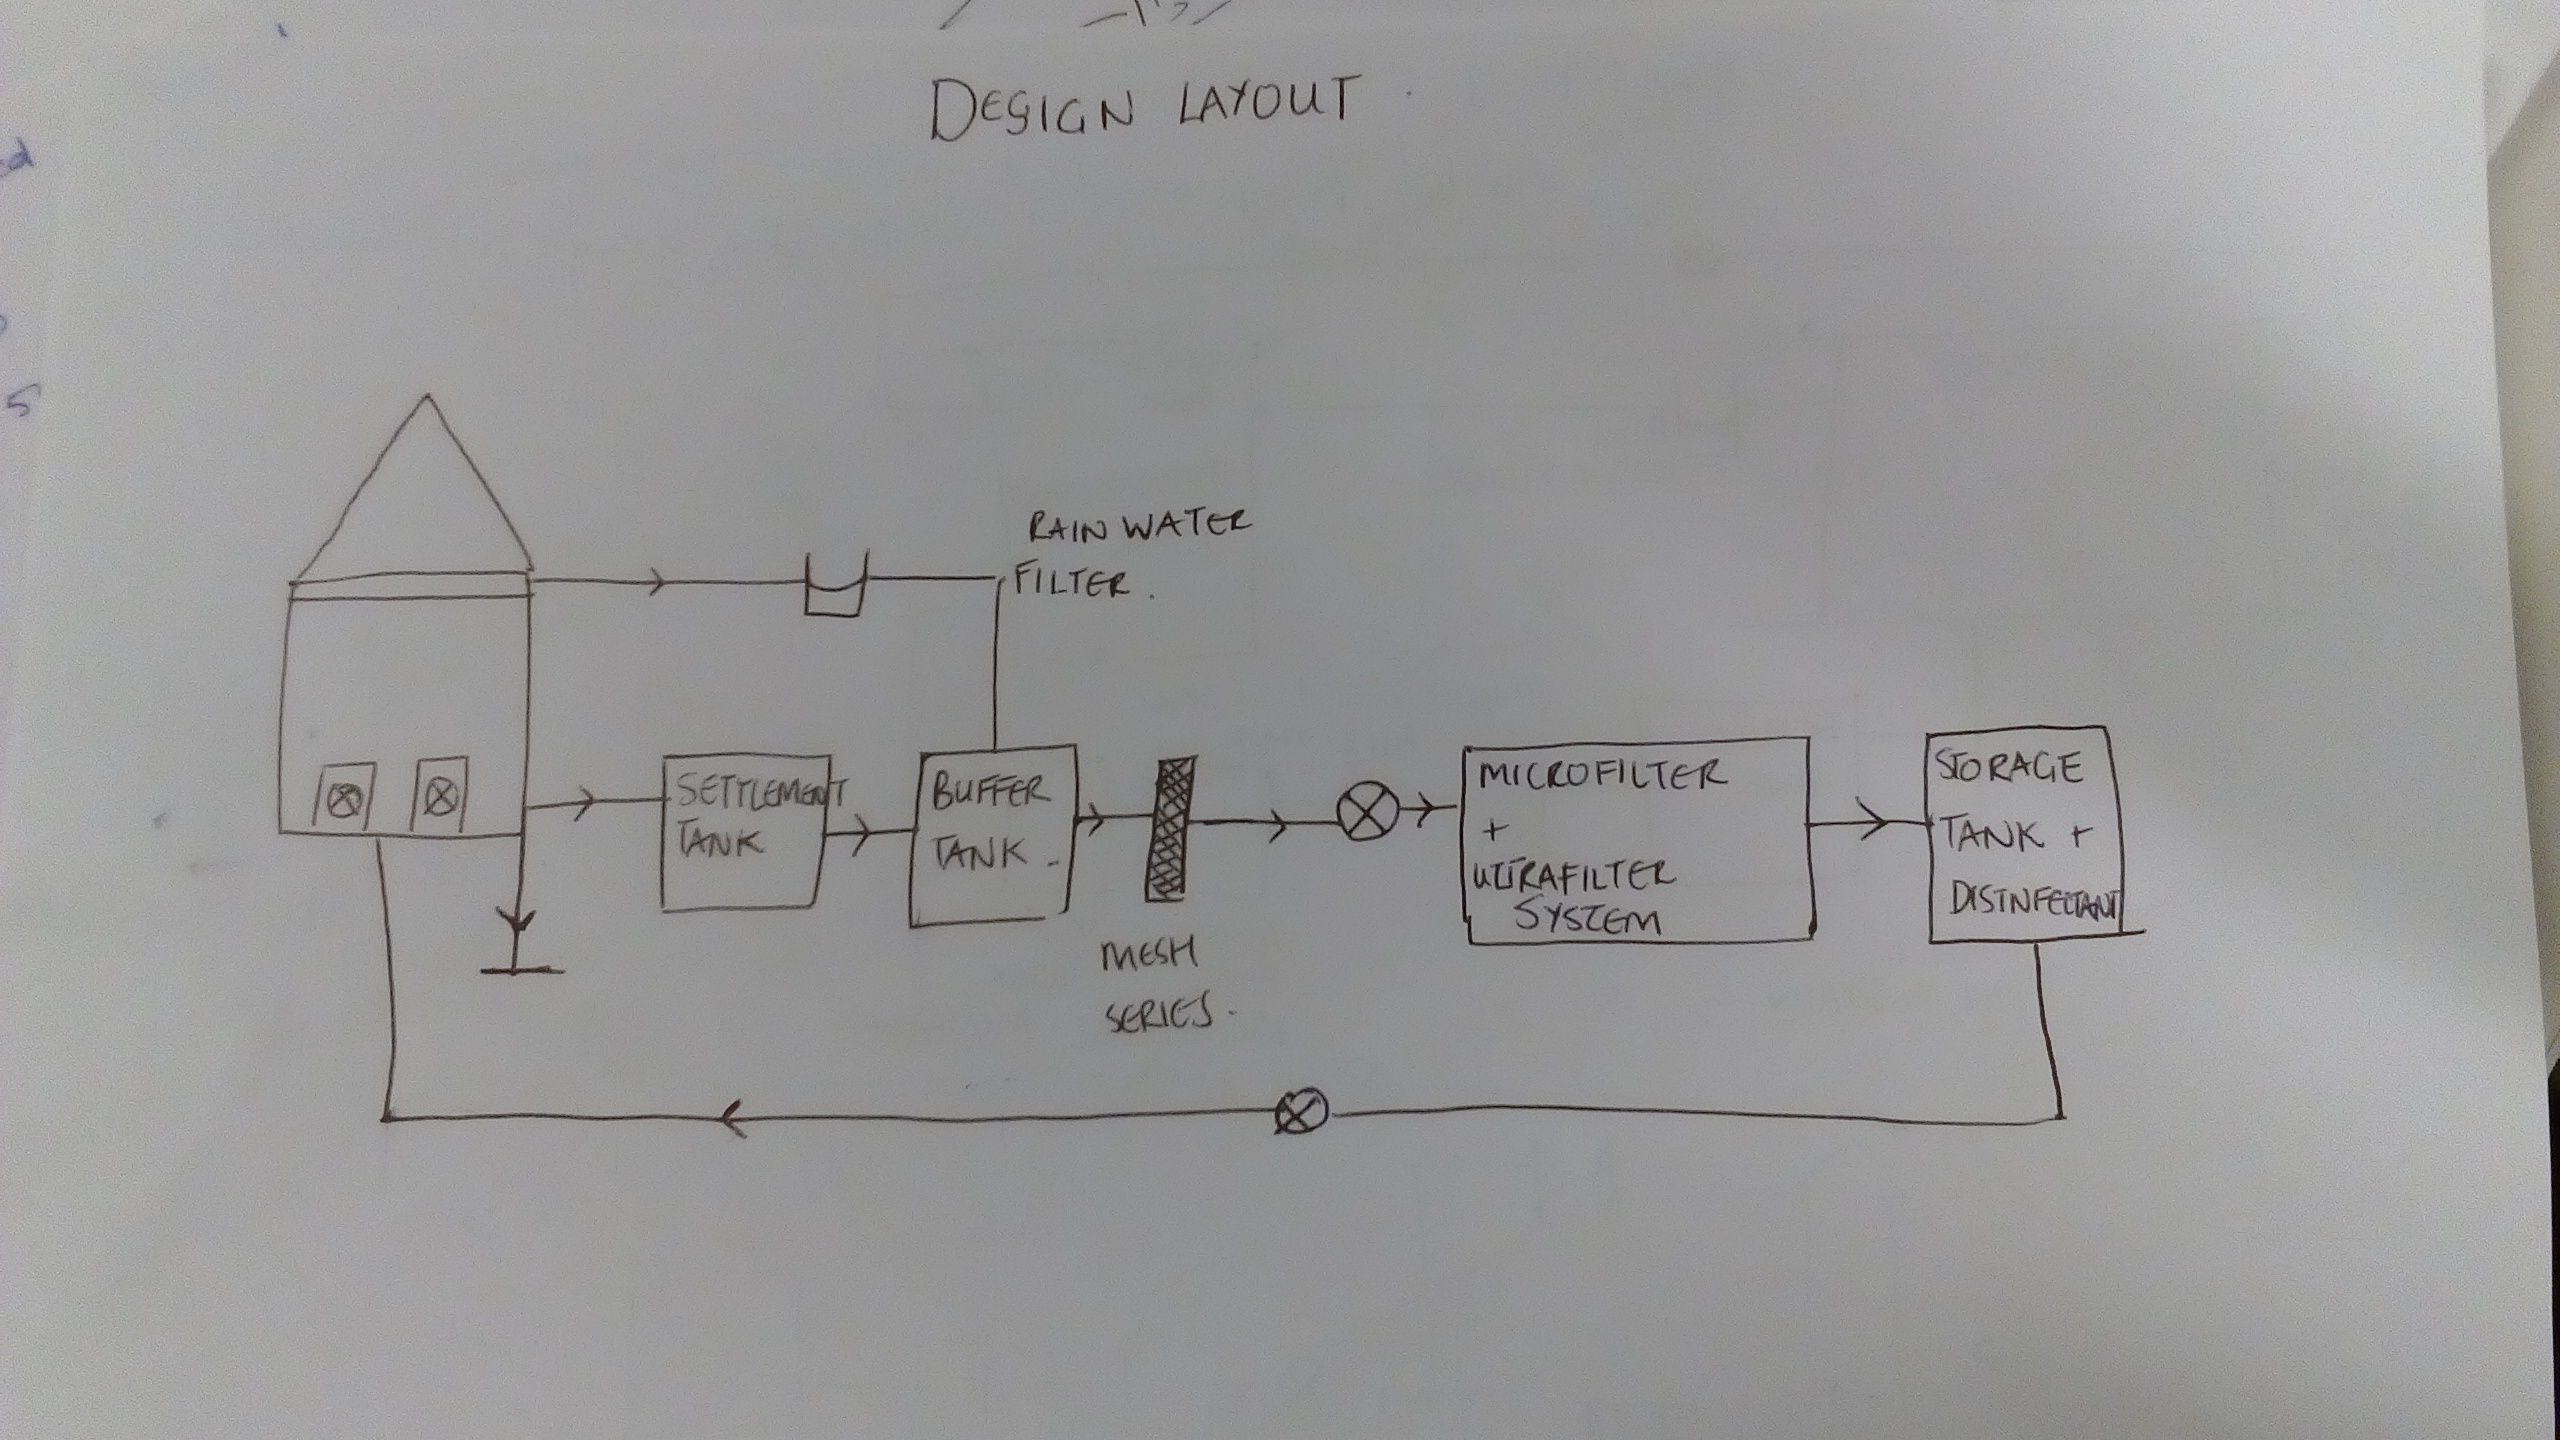 DESIGN LAYOUT
RAIN WATER
FILTER.
SETTLEMENT
TANK
BUFFER
TANK.
MESH
SERIES.
MICROFILTER
+
ULTRAFILTER
SYSTEM
STORAGE
TANK +
DISINFECTANT
5